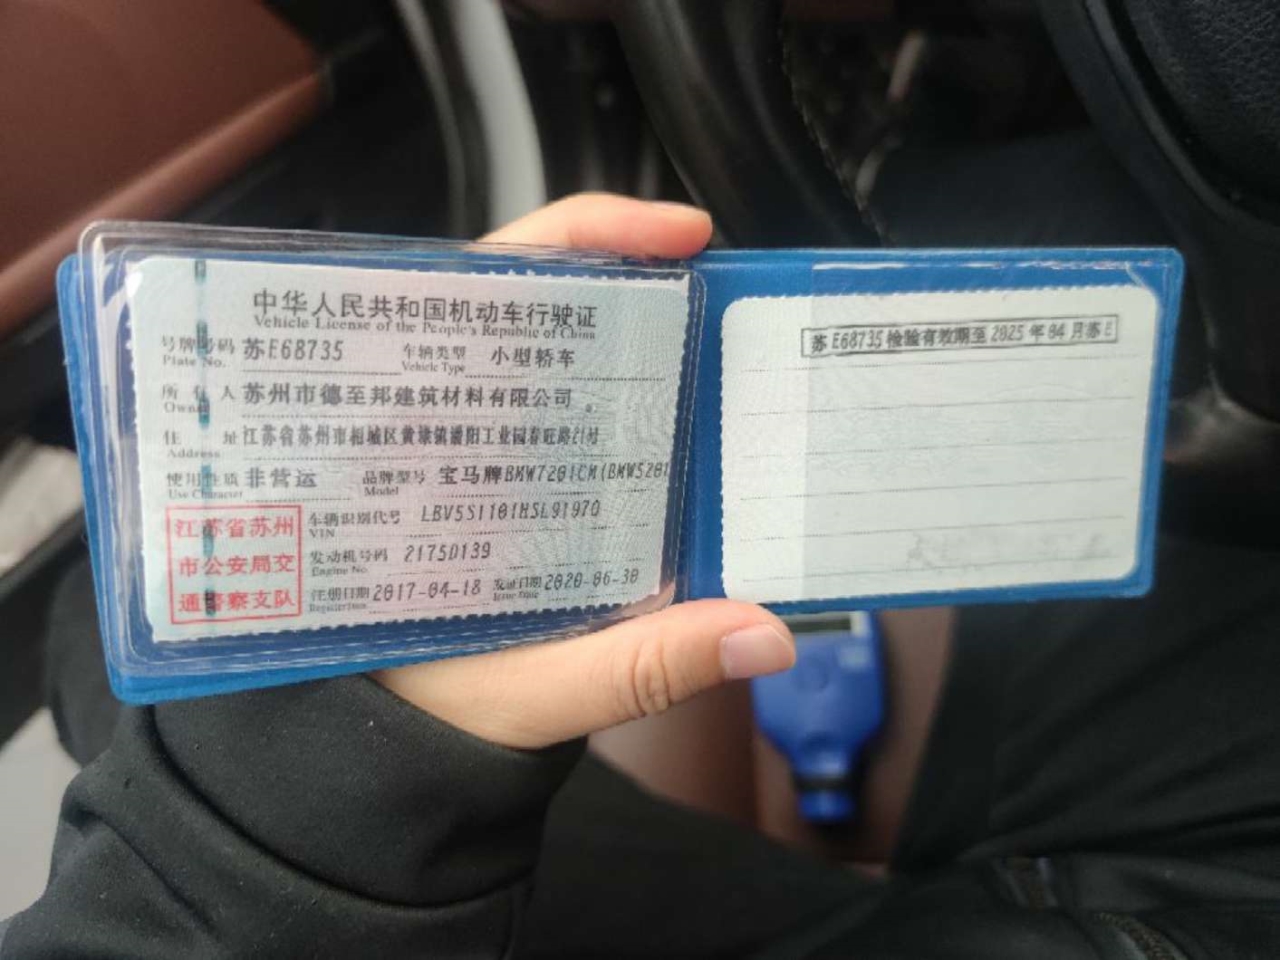 中华人民共和国机动车行驶证
Vehicle License of the People's Republic of China
号牌号码 苏E68735 车辆类型 小型轿车
Plate No. Vehicle Type
所有人 苏州市德至邦建筑材料有限公司
Owner
住址 江苏省苏州市相城区黄埭镇潘阳工业园春旺路21号
Address
使用性质 非营运 品牌型号 宝马牌BMW7201CM(BMW5201
Use Character Model
江苏省苏州
市公安局交
通警察支队
车辆识别代号 LBV5S1101HSL91970
VIN
发动机号码 21750139
Engine No.
注册日期 2017-04-18 发证日期 2020-06-30
Register Date Issue Date
苏E68735检验有效期至2025年04月苏E